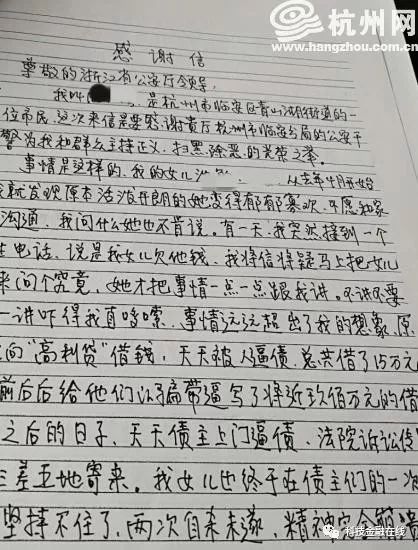 杭州网
www.hangzhou.com.cn
感谢信
尊敬的浙江省公安厅领导:
我叫 是杭州市临安区青山湖街道的一
位市民,这次来信是要感谢贵厅杭州市临安分局的公安干
警为我和群众主持正义、扫黑除恶的光荣之举。
事情是这样的,我的女儿 从去年4月开始
就发现原本活泼开朗的她变得郁郁寡欢、不愿和家
沟通,我问什么她也不肯说。有一天,我突然接到一个
电话,说是我女儿欠他钱,我将信将疑马上把女儿
来问个究竟,她才把事情一点一点跟我讲。不讲不要
一讲吓得我直哆嗦,事情远远超出了我的想象,原
向“高利贷”借钱,天天被人逼债,总共借了15万元
前前后后给他们以骗带逼写了将近玖佰万元的借
之后的日子,天天债主上门逼债,法院诉讼传
三差五地寄来。我女儿也终于在债主们的一次
坚持不住了,两次自杀未遂,精神完全
科技金融在线